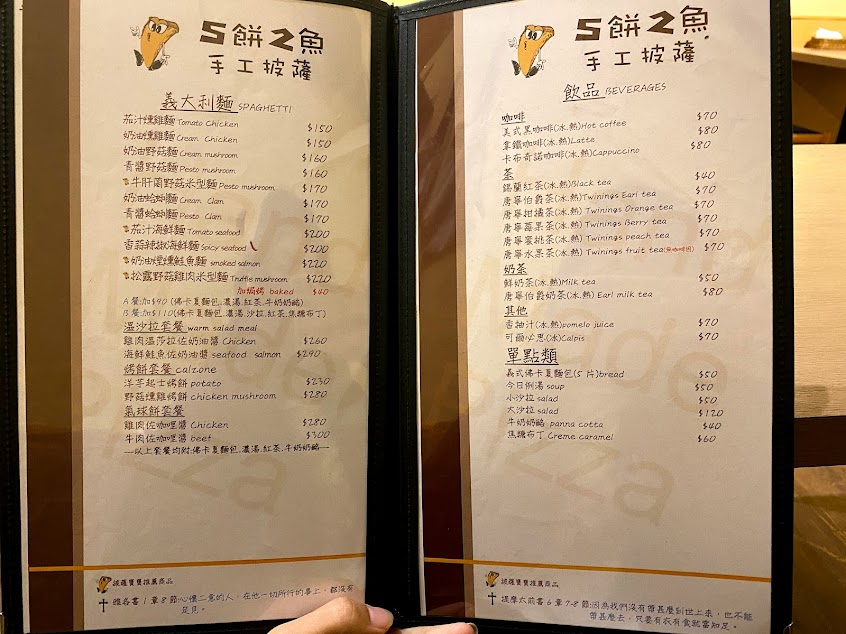 5餅2魚
手工披薩
義大利麵 SPAGHETTI
茄汁燻雞麵 Tomato Chicken $150
奶油燻雞麵 Cream Chicken $150
奶油野菇麵 Cream mushroom $160
青醬野菇麵 Pesto mushroom $160
牛肝菌野菇米型麵 Pesto mushroom $170
奶油蛤蜊麵 Cream Clan $170
青醬蛤蜊麵 Pesto Clan $170
茄汁海鮮麵 Tomato seafood $200
香蒜辣椒海鮮麵 Spicy seafood $200
奶油煙燻鮭魚麵 smoked salmon $220
松露野菇雞肉米型麵 Truffle mushroom $220
加焗烤 baked $40
A餐:加$90 (佛卡夏麵包.濃湯.紅茶.牛奶奶酪)
B餐:加$110(佛卡夏麵包.濃湯.沙拉.紅茶.焦糖布丁)
溫沙拉套餐 warm salad meal
雞肉溫莎拉佐奶油醬 Chicken $260
海鮮鮭魚佐奶油醬 seafood salmon $290
烤餅套餐 calzone
洋芋起士烤餅 potato $230
野菇燻雞烤餅 chicken mushroom $280
氣球餅套餐
雞肉佐咖哩醬 Chicken $280
牛肉佐咖哩醬 beef $300
—以上套餐均附:佛卡夏麵包.濃湯.紅茶.牛奶奶酪—
披薩寶寶推薦商品
雅各書 1 章 8 節:心懷二意的人，在他一切所行的事上，都沒有
定見。
5餅2魚
手工披薩
飲品 BEVERAGES
咖啡 $70
美式黑咖啡(冰.熱)Hot coffee $80
拿鐵咖啡(冰.熱)Latte $80
卡布奇諾咖啡(冰.熱)Cappuccino
茶 $40
錫蘭紅茶(冰.熱)Black tea $70
唐寧伯爵茶(冰.熱)Twinings Earl tea $70
唐寧柑橘茶(冰.熱) Twinings Orange tea $70
唐寧莓果茶(冰.熱) Twinings Berry tea $70
唐寧蜜桃茶(冰.熱) Twinings peach tea $70
唐寧水果茶(冰.熱) Twinings fruit tea(無咖啡因) $70
奶茶
鮮奶茶(冰.熱)Milk tea $50
唐寧伯爵奶茶(冰.熱) Earl milk tea $80
其他
香柚汁(冰.熱)pomelo juice $70
可爾必思(冰)Calpis $70
單點類
義式佛卡夏麵包(5 片)bread $50
今日例湯 soup $50
小沙拉 salad $50
大沙拉 salad $120
牛奶奶酪 panna cotta $40
焦糖布丁 Creme caramel $60
披薩寶寶推薦商品
提摩太前書 6 章 7-8 節:因為我們沒有帶甚麼到世上來，也不能
帶甚麼去，只要有衣有食就當知足。